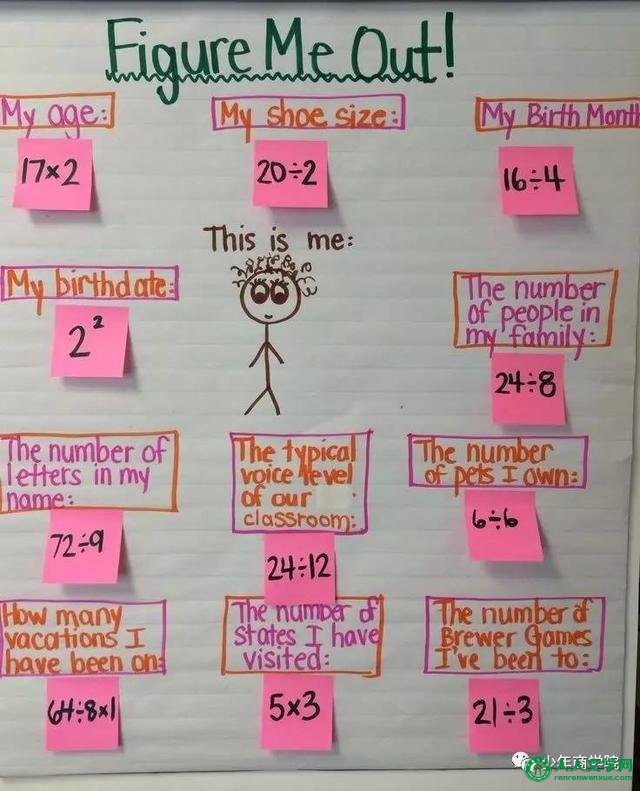 Figure Me Out!
My age:
17×2
My shoe size:
20÷2
My Birth Month
16÷4
This is me:
My birthdate:
2²
The number
of people in
my family:
24÷8
The number of
letters in my
name:
72÷9
The typical
voice level
of our
classroom:
24÷12
The number
of pets I own:
6÷6
How many
vacations I
have been on:
64÷8×1
The number of
States I have
visited:
5×3
The number of
Brewer Games
I've been to:
21÷3
少年商学院
人人文学网
renrenwenxue.com